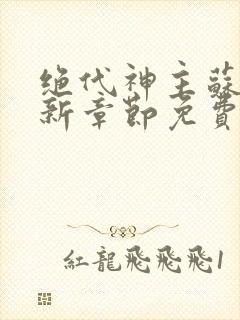 绝代神主蘇
新章節免費
紅龍飛飛飛1